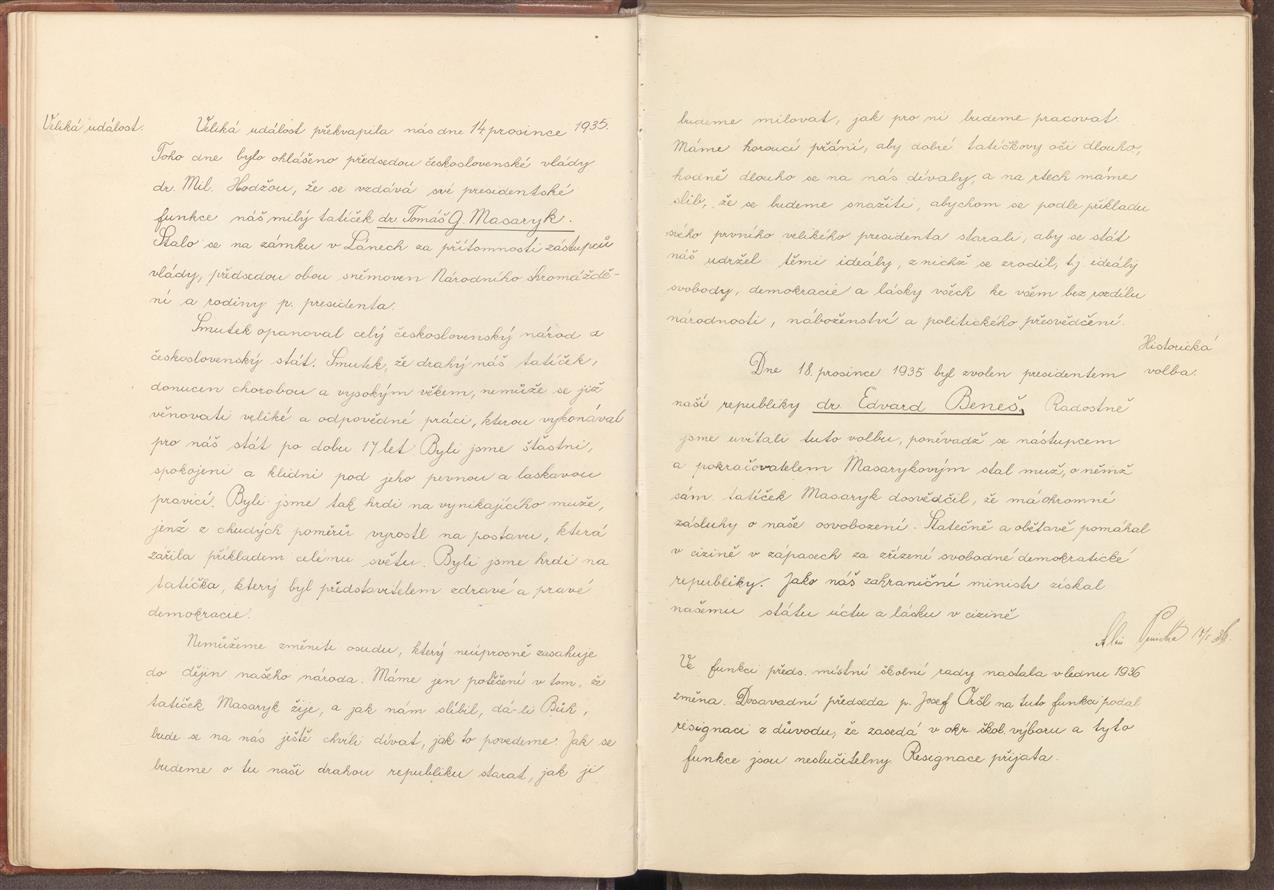 Veliká událost.
Veliká událost překvapila nás dne 14 prosince 1935.
Toho dne bylo ohlášeno předsedou československé vlády
dr. Mil. Hodžou, že se vzdává své presidentské
funkce náš milý tatíček dr. Tomáš G. Masaryk.
Stalo se na zámku v Lánech za přítomnosti zástupců
vlády, předsedou obou sněmoven Národního shromáždě-
ní a rodiny p. presidenta.
Smutek opanoval celý československý národ a
československý stát. Smutek, že drahý náš tatíček,
donucen chorobou a vysokým věkem, nemůže se již
věnovati veliké a odpovědné práci, kterou vykonával
pro náš stát po dobu 17 let. Byli jsme šťastni,
spokojeni a klidni pod jeho pevnou a laskavou
pravicí. Byli jsme tak hrdi na vynikajícího muže,
jenž z chudých poměrův vyrostl na postavu, která
zářila příkladem celému světu. Byli jsme hrdi na
tatíčka, který byl představitelem zdravé a pravé
demokracie.
Nemůžeme změniti osudu, který neúprosně zasahuje
do dějin našeho národa. Máme jen potěšení v tom, že
tatíček Masaryk žije, a jak nám slíbil, dá-li Bůh,
bude se na nás ještě chvíli dívat, jak to povedeme. Jak se
budeme o tu naši drahou republiku starat, jak ji
budeme milovat, jak pro ni budeme pracovat.
Máme horoucí přání, aby dobré tatíčkovy oči dlouho,
hodně dlouho se na nás dívaly, a na rtech máme
slib, že se budeme snažiti, abychom se podle příkladu
svého prvního velikého presidenta starali, aby se stát
náš udržel těmi ideály, z nichž se zrodil, tj ideály
svobody, demokracie a lásky všech ke všem bez rozdílu
národnosti, náboženství a politického přesvědčení.
Historická
volba.
Dne 18. prosince 1935 byl zvolen presidentem
naší republiky dr. Edvard Beneš. Radostně
jsme uvítali tuto volbu, poněvadž se nástupcem
a pokračovatelem Masarykovým stal muž, o němž
sám tatíček Masaryk dosvědčil, že má ohromné
zásluhy o naše osvobození. Statečně a obětavě pomáhal
v cizině v zápasech za zřízení svobodné demokratické
republiky. Jako náš zahraniční ministr získal
našemu státu úctu a lásku v cizině
Ve funkci předs. místní školní rady nastala v lednu 1936
změna. Dosavadní předseda p. Josef Oršl na tuto funkci podal
resignaci z důvodu, že zasedá v okr. škol. výboru a tyto
funkce jsou neslučitelny. Resignace přijata.